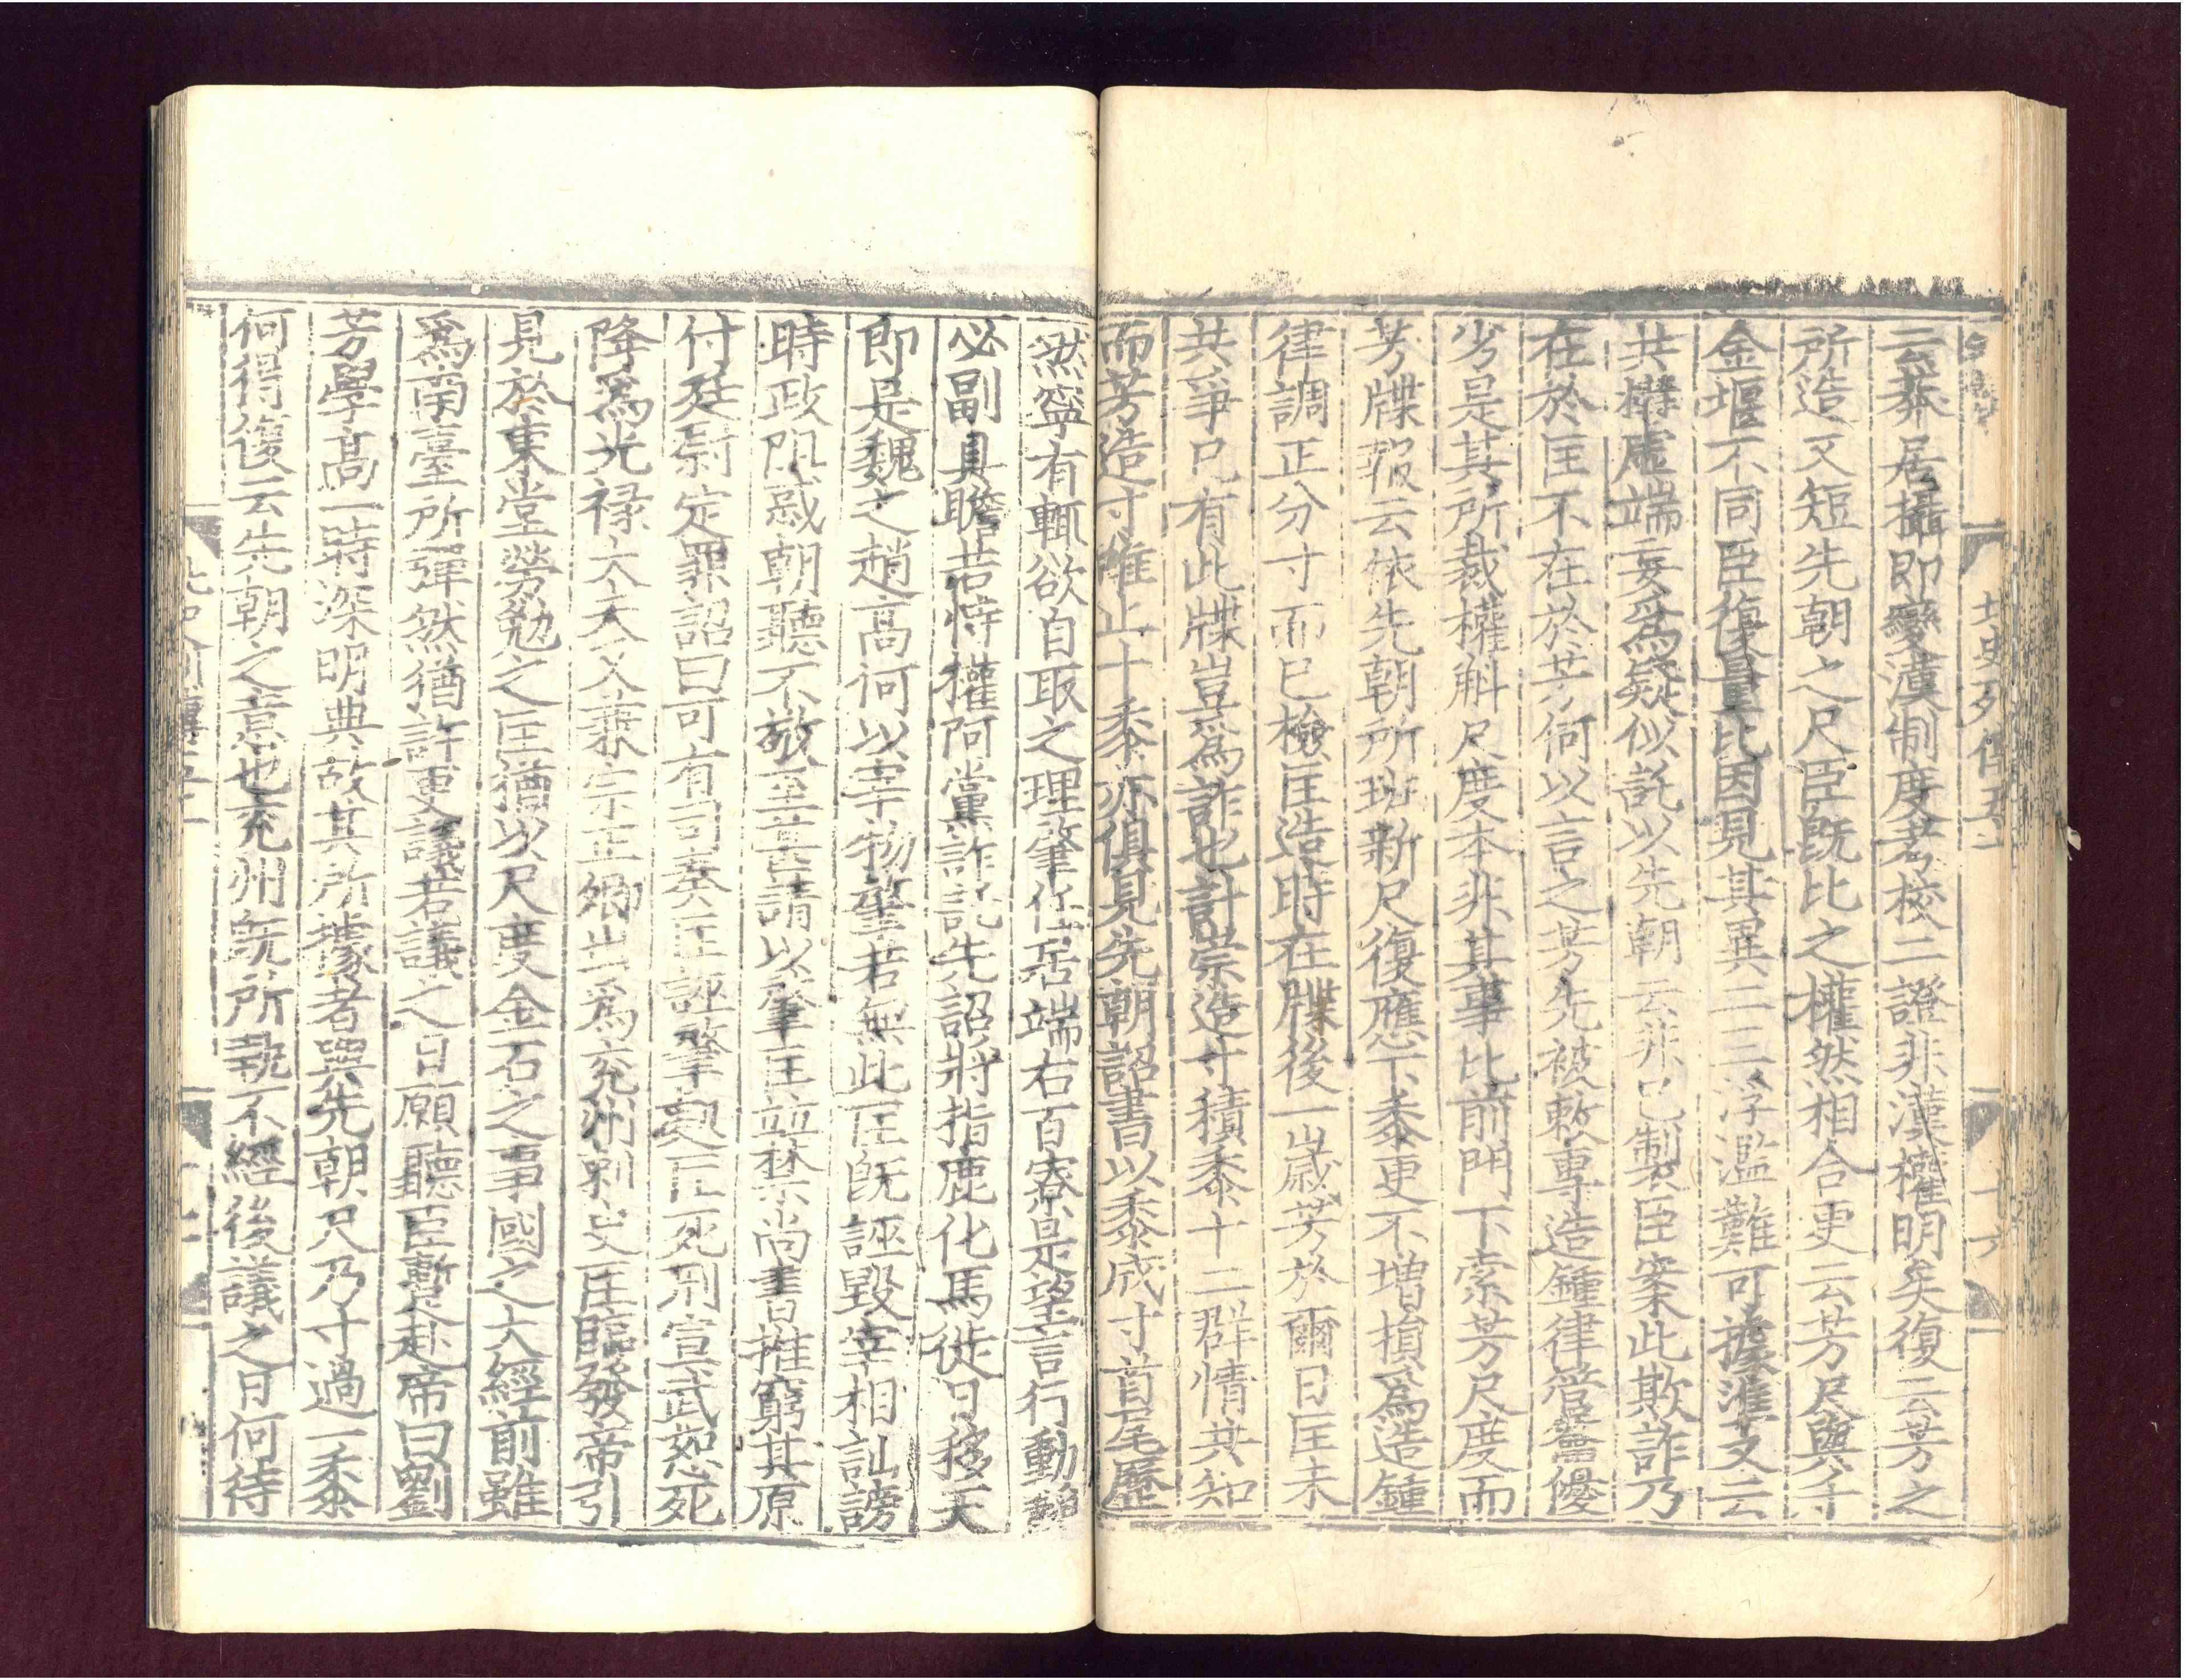 北史列傳五
十六
云莽居攝即變漢制度考校二證非漢權明矣復云芳之
所造又短先朝之尺臣旣比之權然相合更云芳尺與千
金堰不同臣復量比因見其異二三浮濫難可據準又云
共構虛端妄爲疑似託以先朝云非己製臣案此欺詐乃
在於匡不在於芳何以言之芳先被敕專造鍾律管籥優
劣是其所裁權斛尺度本非其事比前門下索芳尺度而
芳牒報云依先朝所班新尺復應下黍更不增損爲造鍾
律調正分寸而已檢匡造時在牒後一歲芳於爾日匡未
共爭已有此牒豈爲詐也計崇造寸積黍十二群情共知
而芳造寸唯止十黍亦俱見先朝詔書以黍成寸首尾歷
然寧有輒欲自取之理肇任居端右百寮是望言行動
必副具瞻若恃權阿黨詐託先詔將指鹿化馬徙日移天
即是魏之趙高何以宰物肇若無此匡旣誣毀宰相訕謗
時政阻惑朝聽不敬至甚請以肇匡並禁尚書推窮其原
付廷尉定罪詔曰可有司奏匡誣肇處匡死刑宣武恕死
降爲光祿大夫又兼宗正卿出爲兗州刺史匡臨發帝引
見於東堂勞勉之匡猶以尺度金石之事國之大經前雖
爲南臺所彈然猶許更議若議之日願聽臣暫赴帝曰劉
芳學高一時深明典故其所據者與先朝尺乃寸過一黍
何得復云先朝之意也兗州旣所執不經後議之日何待